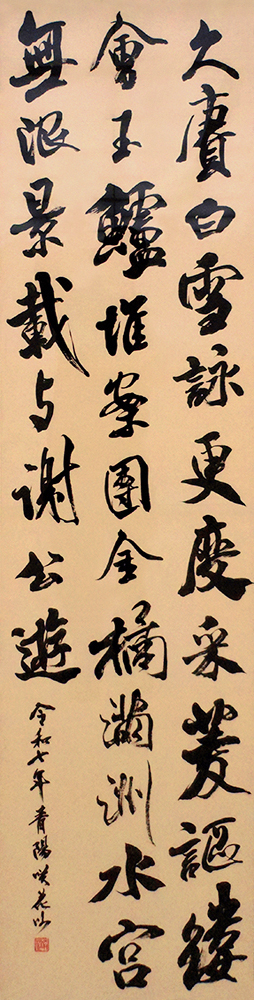 久賡白雪詠更度采菱謳縷
會玉鱸堆案團金橘滿洲水宮
無限景載与謝公遊
令和七年青陽